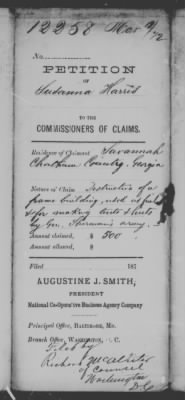 12257 Mar 9/72
No.
PETITION
OF
Susanna Harris
TO THE
COMMISSIONERS OF CLAIMS.
Residence of Claimant Savannah
Chatham County, Georgia
Nature of Claim Destruction of a
frame building, used as fuel
& for making tents & huts
by Gen. Sherman's army.
Amount claimed, $ 500
Amount allowed, $
Filed 187
AUGUSTINE J. SMITH,
PRESIDENT
National Co-Operative Business Agency Company
Principal Office, BALTIMORE, MD.
Branch Office, WASHINGTON, D. C.
Filed by
Richard McAllister
of counsel
Washington
D.C.